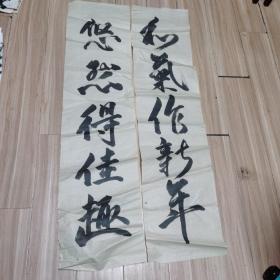 和氣作新年
悠然得佳趣